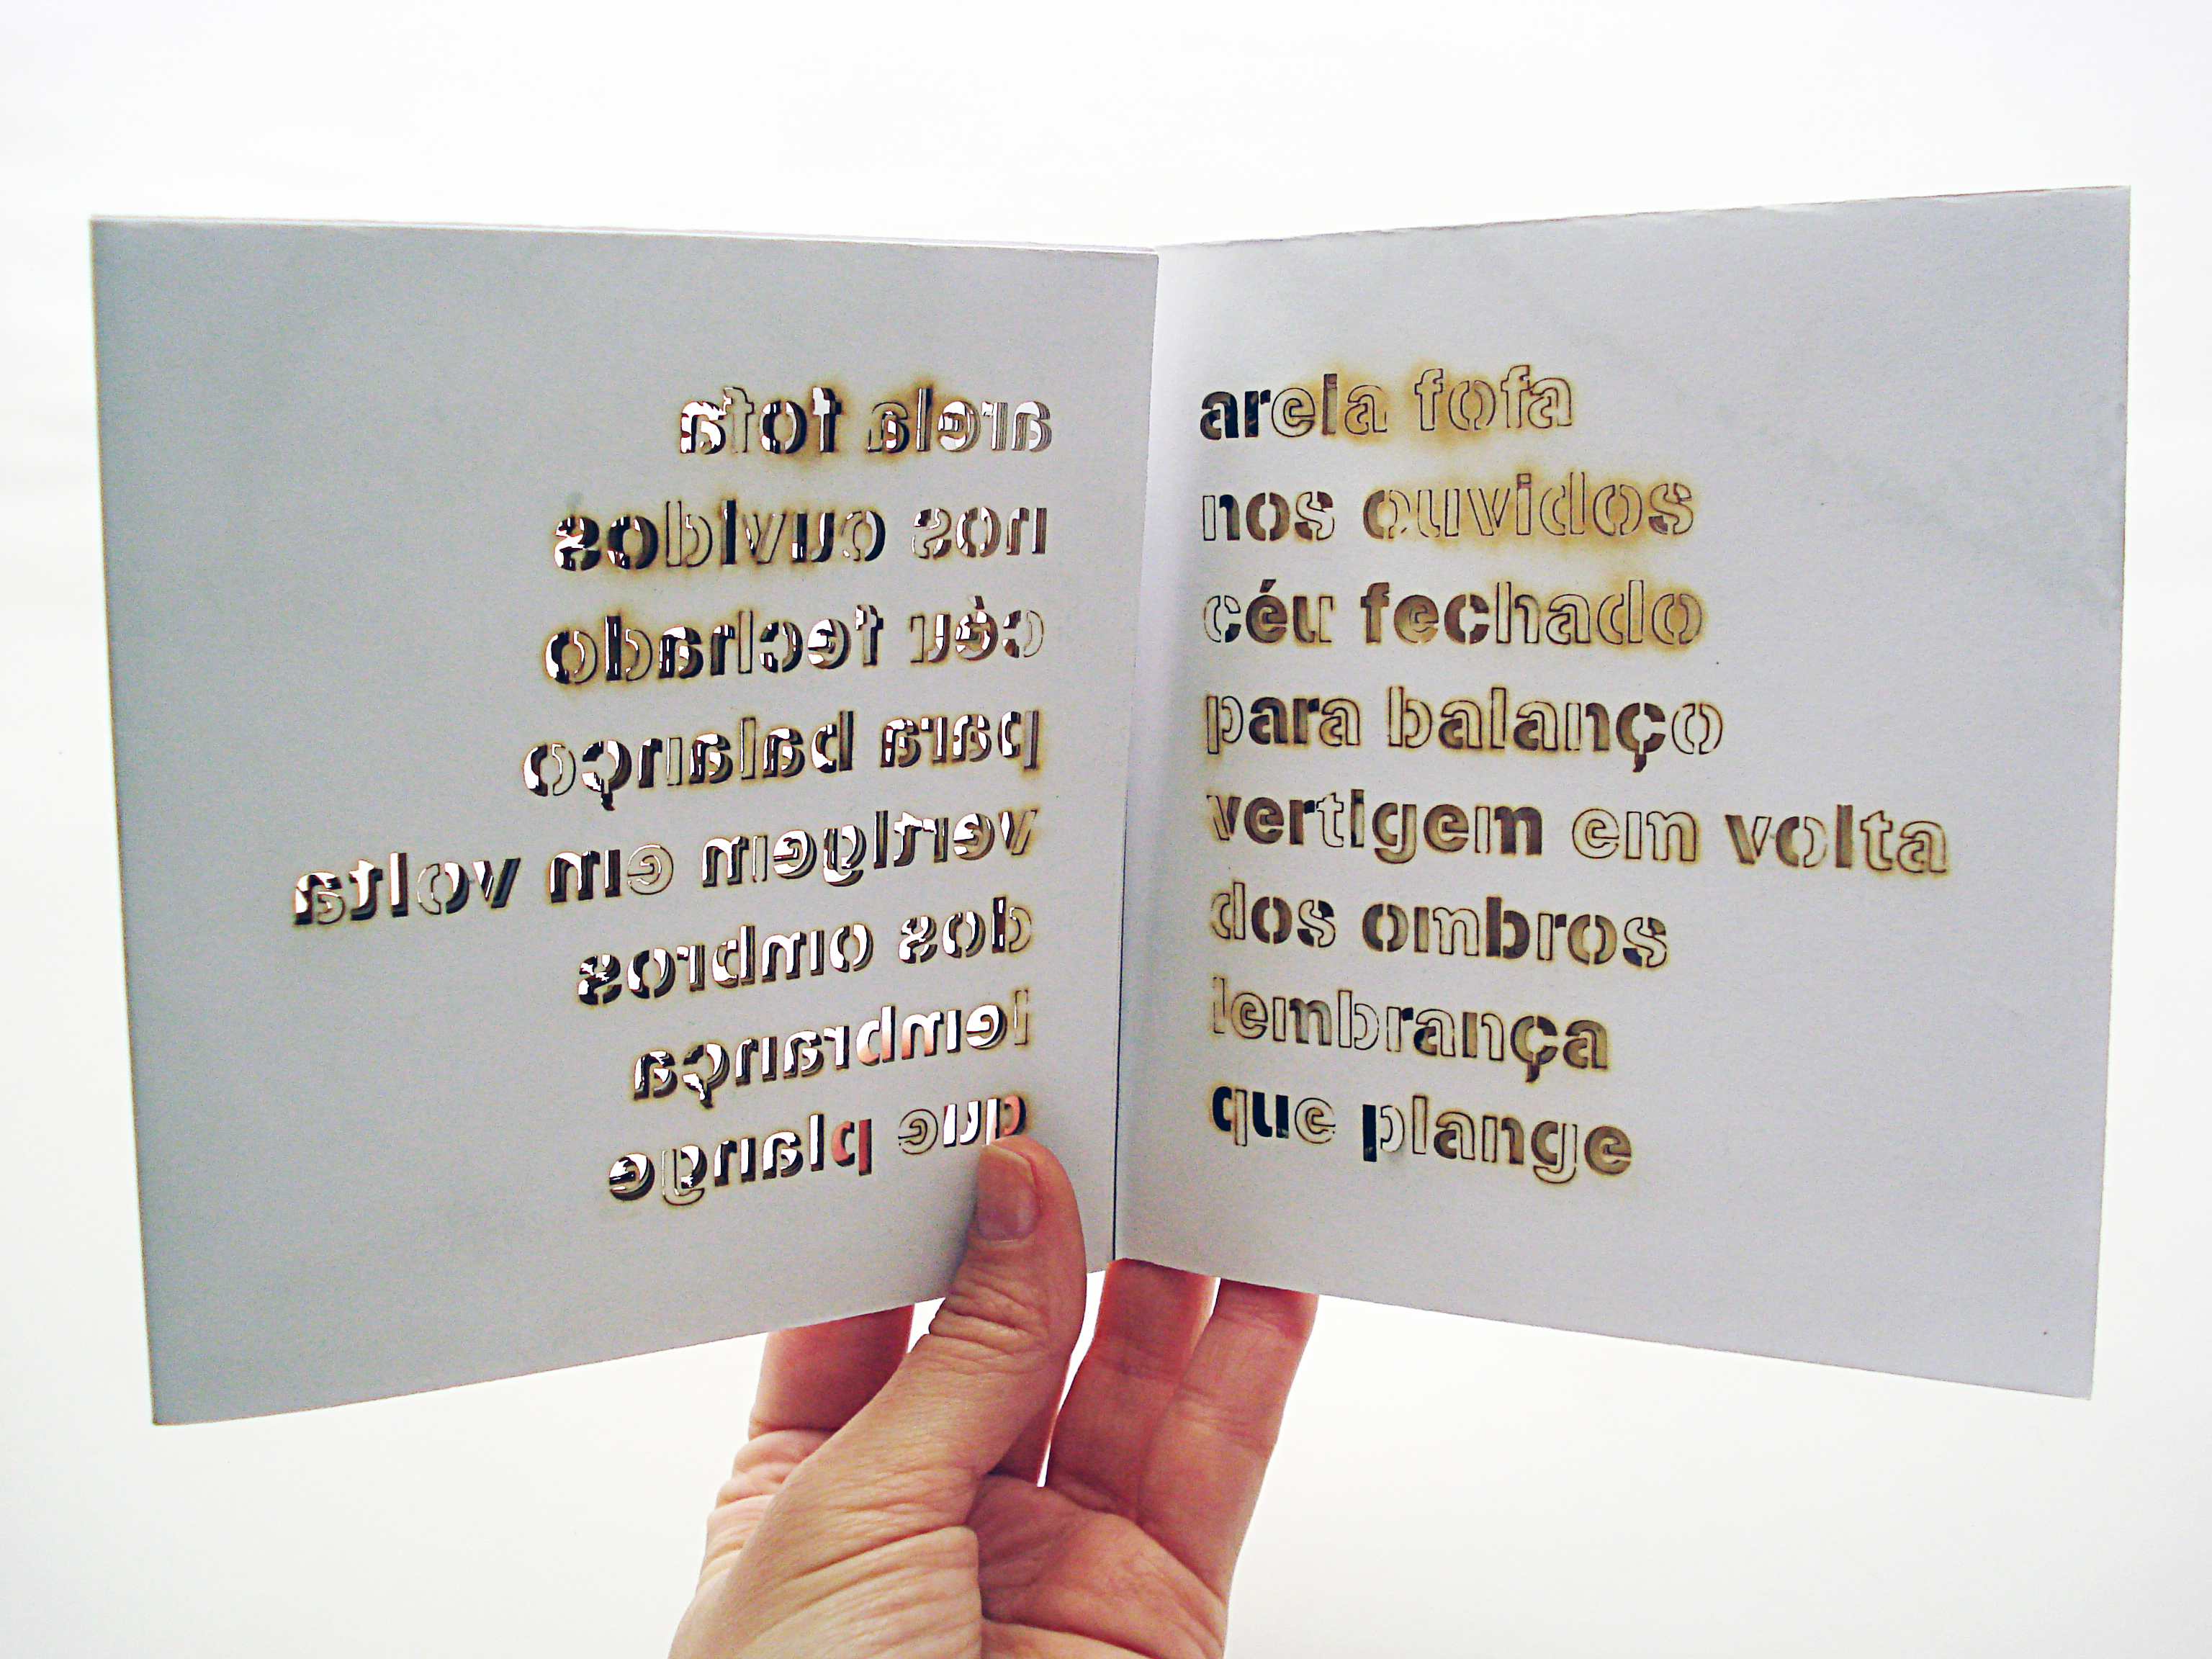 areia fofa
nos ouvidos
céu fechado
para balanço
vertigem em volta
dos ombros
lembrança
que plange
areia fofa
nos ouvidos
céu fechado
para balanço
vertigem em volta
dos ombros
lembrança
que plange